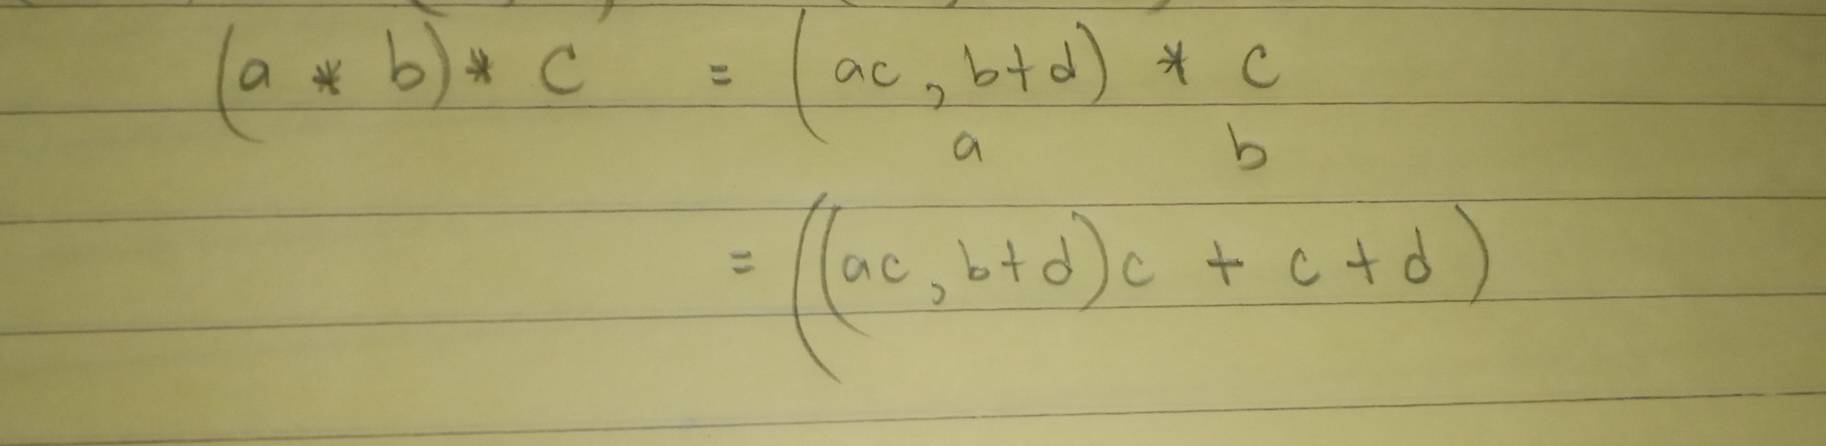 (a * b) * c = (ac, b+d) * c
a b
= ((ac, b+d)c + c + d)